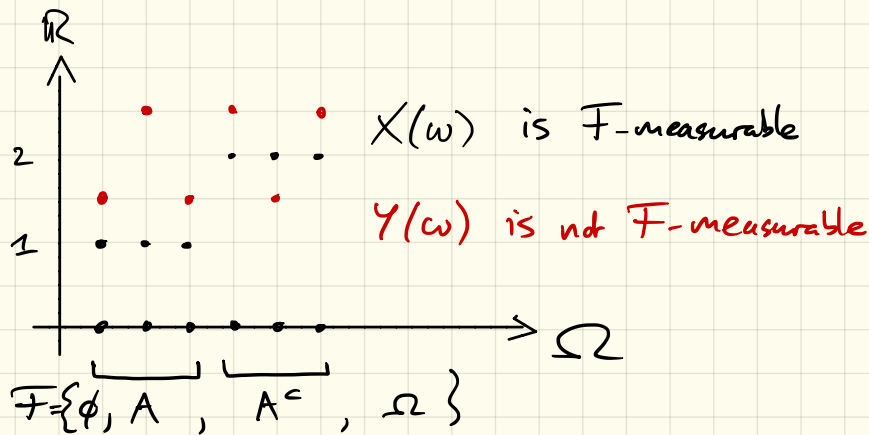 ℝ
X(ω) is F-measurable
2
Y(ω) is not F-measurable
1
Ω
F={ϕ, A, Aᶜ, Ω}